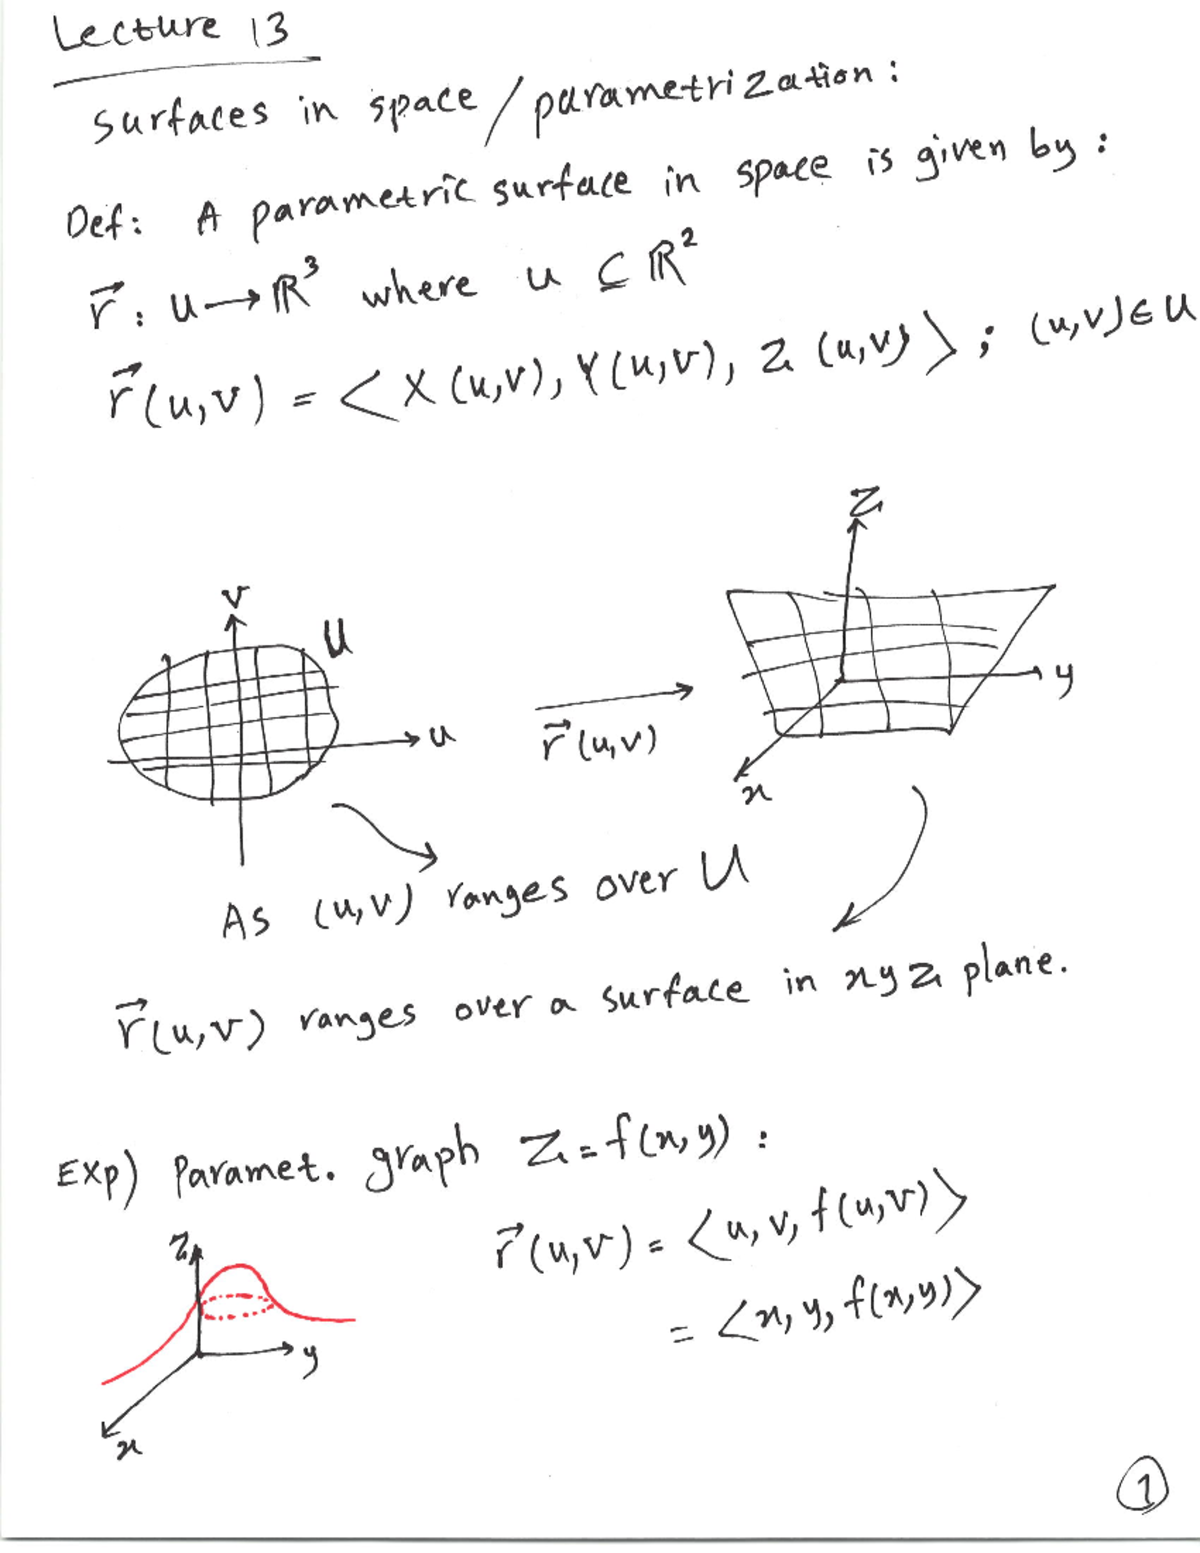 Lecture 13
Surfaces in space / parametrization :
Def: A parametric surface in space is given by :
r⃗ : U → ℝ³ where U ⊆ ℝ²
r⃗(u,v) = <X(u,v), Y(u,v), Z(u,v)> ; (u,v) ∈ U
v
U
u
r⃗(u,v)
z
y
x
As (u,v) ranges over U
r⃗(u,v) ranges over a surface in xyz plane.
Exp) Paramet. graph z = f(x,y) :
r⃗(u,v) = <u, v, f(u,v)>
= <x, y, f(x,y)>
z
y
x
1